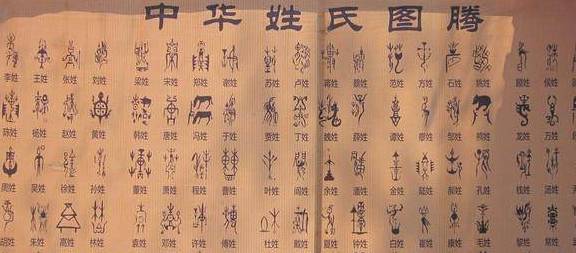 中华姓氏图腾
李姓 王姓 张姓 刘姓 梁姓 宋姓 郑姓 谢姓 苏姓 卢姓 蒋姓 蔡姓 范姓 方姓 石姓 姚姓
陈姓 杨姓 赵姓 黄姓 韩姓 唐姓 冯姓 于姓 贾姓 丁姓 魏姓 薛姓 谭姓 廖姓 邹姓 熊姓 龙姓 万姓
周姓 吴姓 徐姓 孙姓 董姓 萧姓 程姓 曹姓 叶姓 阎姓 余姓 潘姓 金姓 陆姓 郝姓 孔姓 钱姓 汤姓
胡姓 朱姓 高姓 林姓 袁姓 邓姓 许姓 傅姓 杜姓 戴姓 夏姓 钟姓 白姓 崔姓 康姓 毛姓 黎姓 常姓